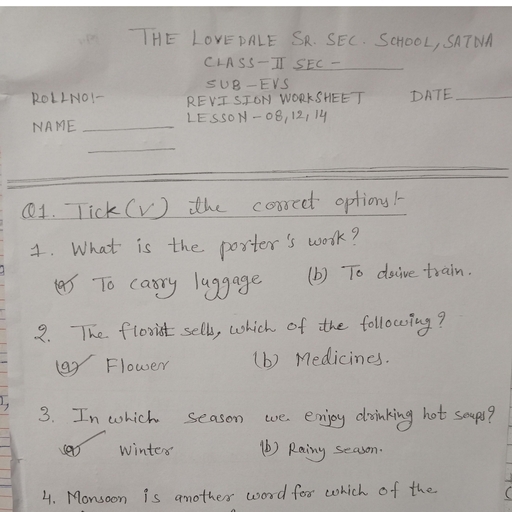 THE LOVEDALE SR. SEC. SCHOOL, SATNA
CLASS-II SEC-
SUB-EVS
ROLLNO:- REVISION WORKSHEET DATE
NAME LESSON-08, 12, 14
Q1. Tick (√) the correct options:-
1. What is the porter's work?
(a) To carry luggage (b) To drive train.
2. The florist sells, which of the following?
(a) Flower (b) Medicines.
3. In which season we enjoy drinking hot soups?
(a) Winter (b) Rainy season.
4. Monsoon is another word for which of the